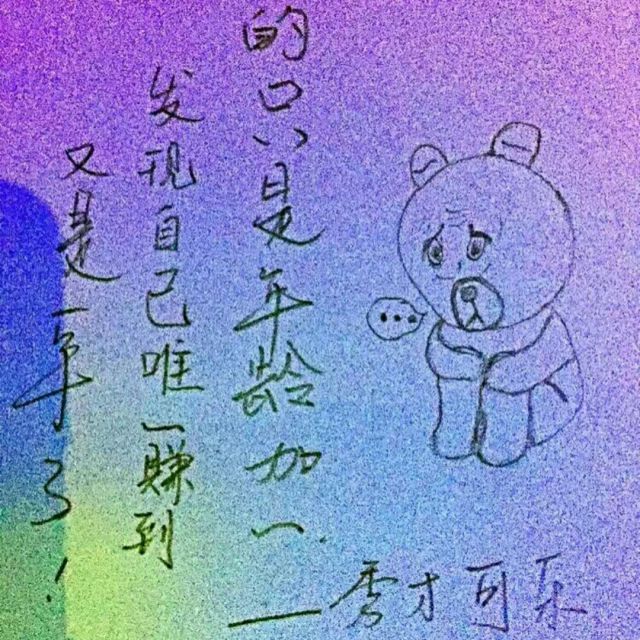 又是一年了！
发现自己唯一賺到
的只是年龄加一.
——秀才可乐